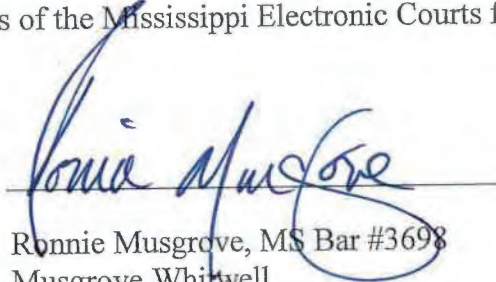 s of the Mississippi Electronic Courts f
Ronnie Musgrove
Ronnie Musgrove, MS Bar #3698
Musgrove Whitwell